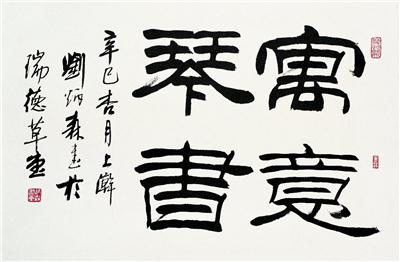 寓意
琴書
辛巳杏月上澣
劉炳森書於
瑞德草堂